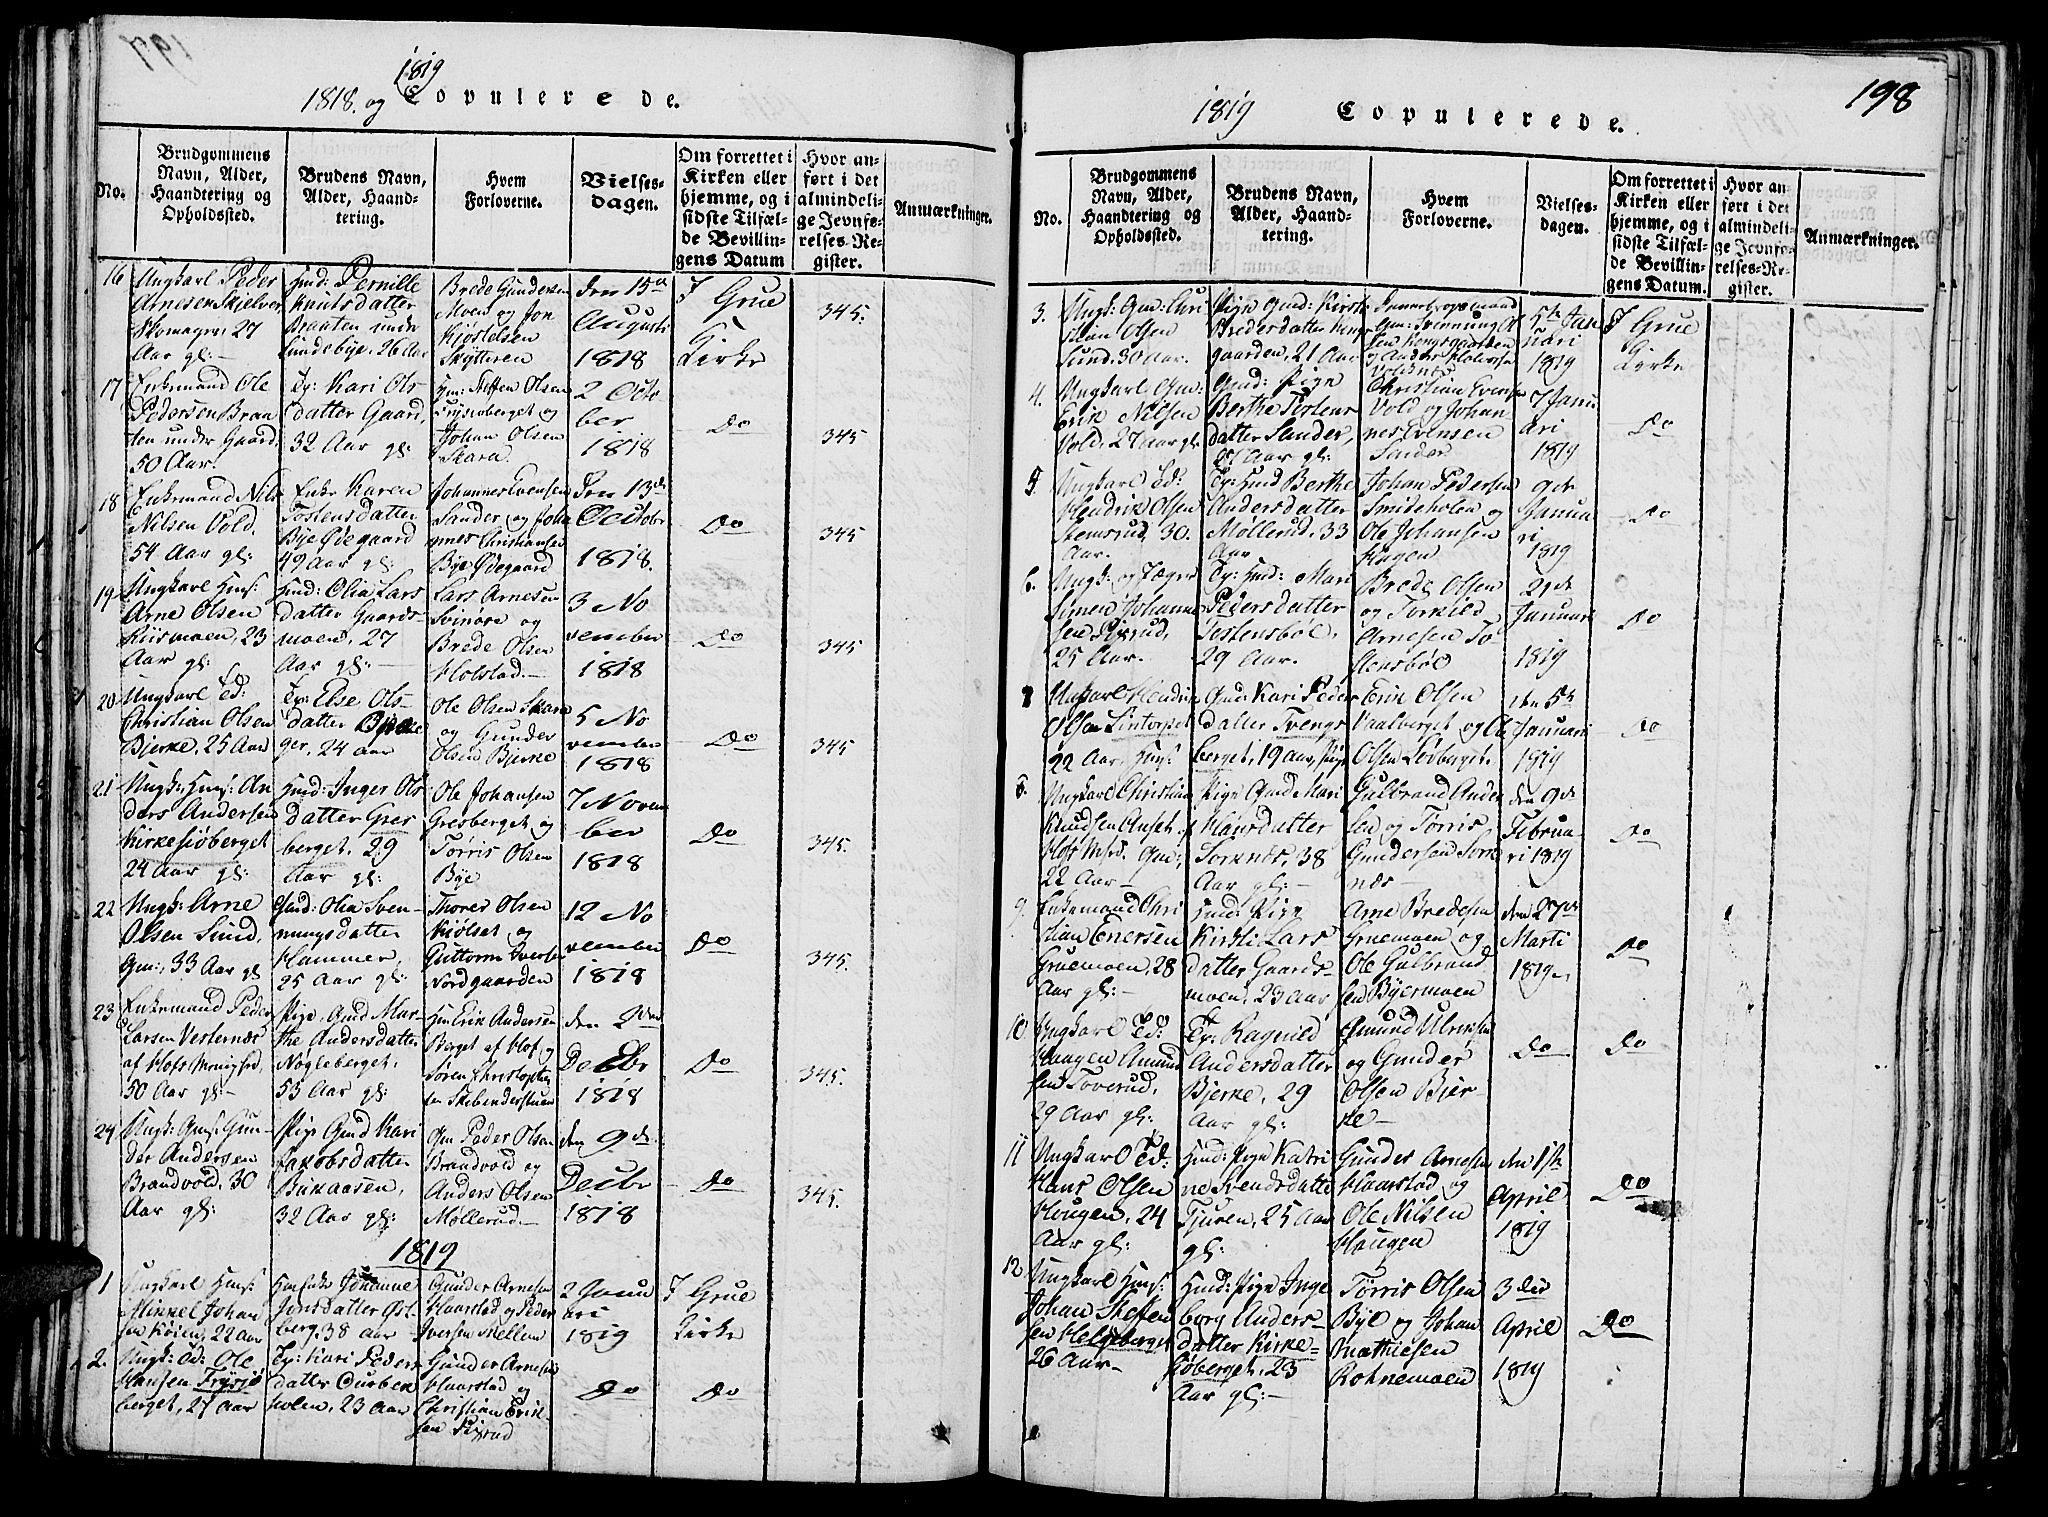 197
1818. og 1819 Copulerede.
No.
Brudgommens
Navn, Alder,
Haandtering og
Opholdssted.
Brudens Navn,
Alder, Haand-
tering.
Hvem
Forloverne.
Vielses-
dagen.
Om forrettet i
Kirken eller
hjemme, og i
sidste Tilfæl-
de Bevillin-
gens Datum
Hvor an-
ført i det
almindeli-
ge Jevnfø-
relses-Re-
gister.
Anmærkninger.
16
Ungkarl Peder
Arnesen
Skomager 27
Aar gl:
Hmd: Pernille
Knudsdatter
Braaten under
Sundebye, 26 Aar
Brede Gundersen
Moen og Jon
Kjøstelsen
Skytteren
den 15de
Augusti
1818
I Grue
Kirke
345.
17
Enkemand Ole
Pedersen Braa
ten under Gaard,
50 Aar.
Ty: Kari Ols-
datter Gaard,
32 Aar gl:
Gm: Steffen Olsen
Frysioberget og
Johan Olsen
Skara.
2 Octo
ber
1818
Do
345
18
Enkemand Nils
Nilsen Vold.
54 Aar gl:
Enke Karen
Tostensdatter
Bye Ødegaard
49 Aar gl:
Johannes Evensen
Sander og Joha
nnes Christiansen
Bye Ødegaard
Den 13de
October
1818.
Do
345
19
Ungkarl Huusm:
Arne Olsen
Kiismoen, 23
Aar gl:
Hmd: Olia Lars
datter Gaards-
moen, 27
Aar gl:
Lars Arnesen
Svinøre og
Brede Olsen
Holstad.
3 No
vember
1818
Do
345
20
Ungkarl Td:
Christian Olsen
Bjerke, 25 Aar
Ty: Else Ols-
datter
ger, 24 Aar
Ole Olsen Skara
og Gunder
Olsen Bjerke
5 No
vember
1818
Do
345
21
Ungk: Huusm: An
ders Andersen
Kirkesiøberget
24 Aar gl:
Hmd: Inger Ols
datter Gres
berget, 29
Aar gl:
Ole Johansen
Gresberget og
Tørris Olsen
Bye
7 Novem
ber
1818
Do
345.
22
Ungk: Arne
Olsen Sund,
Gm:, 33 Aar gl
Gmd: Olia Sven-
nungsdatter
Hammer,
25 Aar gl:
Thorer Olsen
Kiølset og
Guttorm Iversen
Nordgaarden
12 No
vember
1818
Do
345.
23
Enkemand Peder
Larsen Vesternæs
af Hofs
50 Aar gl:
Pige, Gmd Mar-
the Andersdatter
Nøgleberget,
53 Aar gl:
Gm Erik Andersen
Berget af Hof og
Søren Christophe
sen Skibenderstuen
den 2den
Decbr
1818
Do
345.
24
Ungk: Gm: Gun-
der Andersen
Brandvold, 30
Aar gl:
Pige Gmd Kari
Jakobsdatter
Bukaasen,
32 Aar gl:
Gm Peder Olsen
Brandvold og
Anders Olsen
Møllerud
den 9de
Decbr
1818
Do
345.
1819
1
Ungkarl Huusm:
Mikkel Johan
sen Køien, 22 Aar
Enke Johanne
Jonsdatter Øst
berg, 38 Aar
Gunder Arnesen
Haarstad og Peder
Iversen Mellem
2 Janu
ari
1819
I Grue
Kirke
2.
Ungk: Td: Ole
Hansen Frysjø
berget, 27 Aar
Ty: Kari Peders
datter Durben
holen, 23 Aar
Gunder Arnesen
Haarstad og
Christian Erik-
sen Pixrud
Do
Do
198
1819 Copulerede.
No.
Brudgommens
Navn, Alder,
Haandtering og
Opholdssted.
Brudens Navn,
Alder, Haand-
tering.
Hvem
Forloverne.
Vielses-
dagen.
Om forrettet i
Kirken eller
hjemme, og i
sidste Tilfæl-
de Bevillin-
gens Datum.
Hvor an-
ført i det
almindeli-
ge Jevnfø-
relses-Re-
gister.
Anmærkninger.
3.
Ungk: Gm: Chri
stian Olsen
Sund, 30 Aar.
Pige Gmd: Kirsti
Bredesdatter Kongs
gaarden, 21 Aar
Gm: Svennung Ol
sen Kongsgaarden
og Anders Halvorsen
Voldnes
5te Jan
uari
1819
I Grue
Kirke
4.
Ungkarl Gm:
Erik Nilsen
Vold, 27 Aar gl.
Gmd: Pige
Berthe Tostens
datter Sander,
Aar gl:
Christian Evensen
Vold og Johan
nes Evensen
Sander
7 Janu
ari
1819
Do
5.
Ungkarl Td:
Hendrik Olsen
Stemsrud, 30
Aar.
Ty: Hmd Berthe
Andersdatter
Møllerud, 33
Aar
Johan Pedersen
Smideholen og
Ole Johansen
Hagen
9de
Janua
ri
1819
Do
6.
Ungk: og Jæger
Simen Johanne
sen Pixrud,
25 Aar.
Ty: Hmd: Mari
Pedersdatter
Tostensbøl,
29 Aar.
Brede Olsen
og Torkild
Arnesen To
stensbøl
29de
Januari
1819
Do
7
Ungkarl Hendrik
Olsen Lintorpet
22 Aar, Huusm:
Gmd: Kari Peders
datter Tvengs
berget, 19 Aar, Pige
Erik Olsen
Vaalberget og Ole
Olsen Løvberget.
den 5te
Januari
1919
Do
8.
Ungkarl Christian
Knudsen Anset af
Hofs Gm:,
22 Aar
Pige Gmd Mari
Hansdatter
Sorknæs, 38
Aar gl:
Gulbrand Ander
sen og Tørris
Gundersen Sork
næs
den 9de
Februa
ri 1819
Do
9.
Enkemand Chri
stian Enersen
Gruemoen, 28
Aar gl:
Hmd: Pige
Kirsti Lars
datter Gaards-
moen, 23 Aar
Arne Bredesen
Gruemoen og
Ole Gulbrand
sen Byermoen
den 27de
Marti
1819
Do
10
Ungkarl Td:
Haagen Amund
sen Toverud,
29 Aar gl:
Ty: Ragnild
Andersdatter
Bjerke, 29
Aar gl:
Amund Ulriksen
og Gunder
Olsen Bjer-
ke
Do
Do
11
Ungkarl Td:
Hans Olsen
Hougen, 24
Aar gl:
Hmd: Pige Katri
ne Svendsdatter
Tjuren, 25 Aar
gl:
Gunder Arnesen
Haarstad og
Ole Nilsen
Haugen
den 1ste
April
1819
Do
12
Ungkarl Huusm:
Johan Steffen
sen Helgeberget
26 Aar
Hmd: Pige Inge
borg Anders-
datter Kirke-
siøberget, 23
Aar gl:
Tørris Olsen
Bye og Johan
Mathiesen
Rohnemoen
3die
April
1819
Do